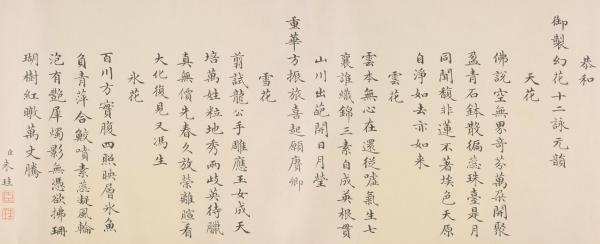 恭和
御製幻花十二詠元韻
天花
佛說空無界奇芬萬朵開聚
盈青石鉢散徧蕊珠臺是月
同聞馥非蓮不著埃色天原
自淨如去亦如来
雲花
雲本無心在還從噓氣生七
襄誰織錦三素自成英根貫
山川出葩開日月瑩
重華方振旅喜起願賡卿
雪花
剪試龍公手雕應玉女成天
培萬姓粒地秀兩歧英待臘
真無價先春久放榮離暄看
大化復見又馮生
氷花
百川方實腹四照映層氷魚
負青萍合鮫噴素蕊凝風輪
泡有艷犀燭影無憑欲拂珊
瑚樹紅暾萬丈騰
臣朱珪